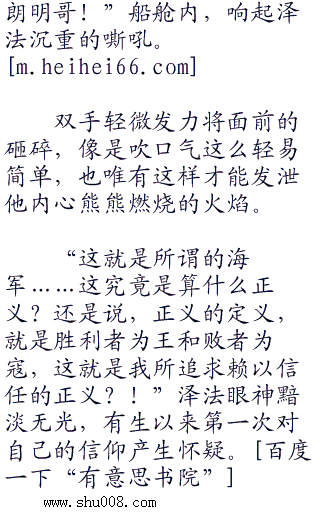 朗明哥！”船舱内，响起泽
法沉重的嘶吼。
[m.heihei66.com]
双手轻微发力将面前的
砸碎，像是吹口气这么轻易
简单，也唯有这样才能发泄
他内心熊熊燃烧的火焰。
“这就是所谓的海
军……这究竟是算什么正
义？还是说，正义的定义，
就是胜利者为王和败者为
寇，这就是我所追求赖以信
任的正义？！”泽法眼神黯
淡无光，有生以来第一次对
自己的信仰产生怀疑。[百度
一下“有意思书院”]
www.shu008.com